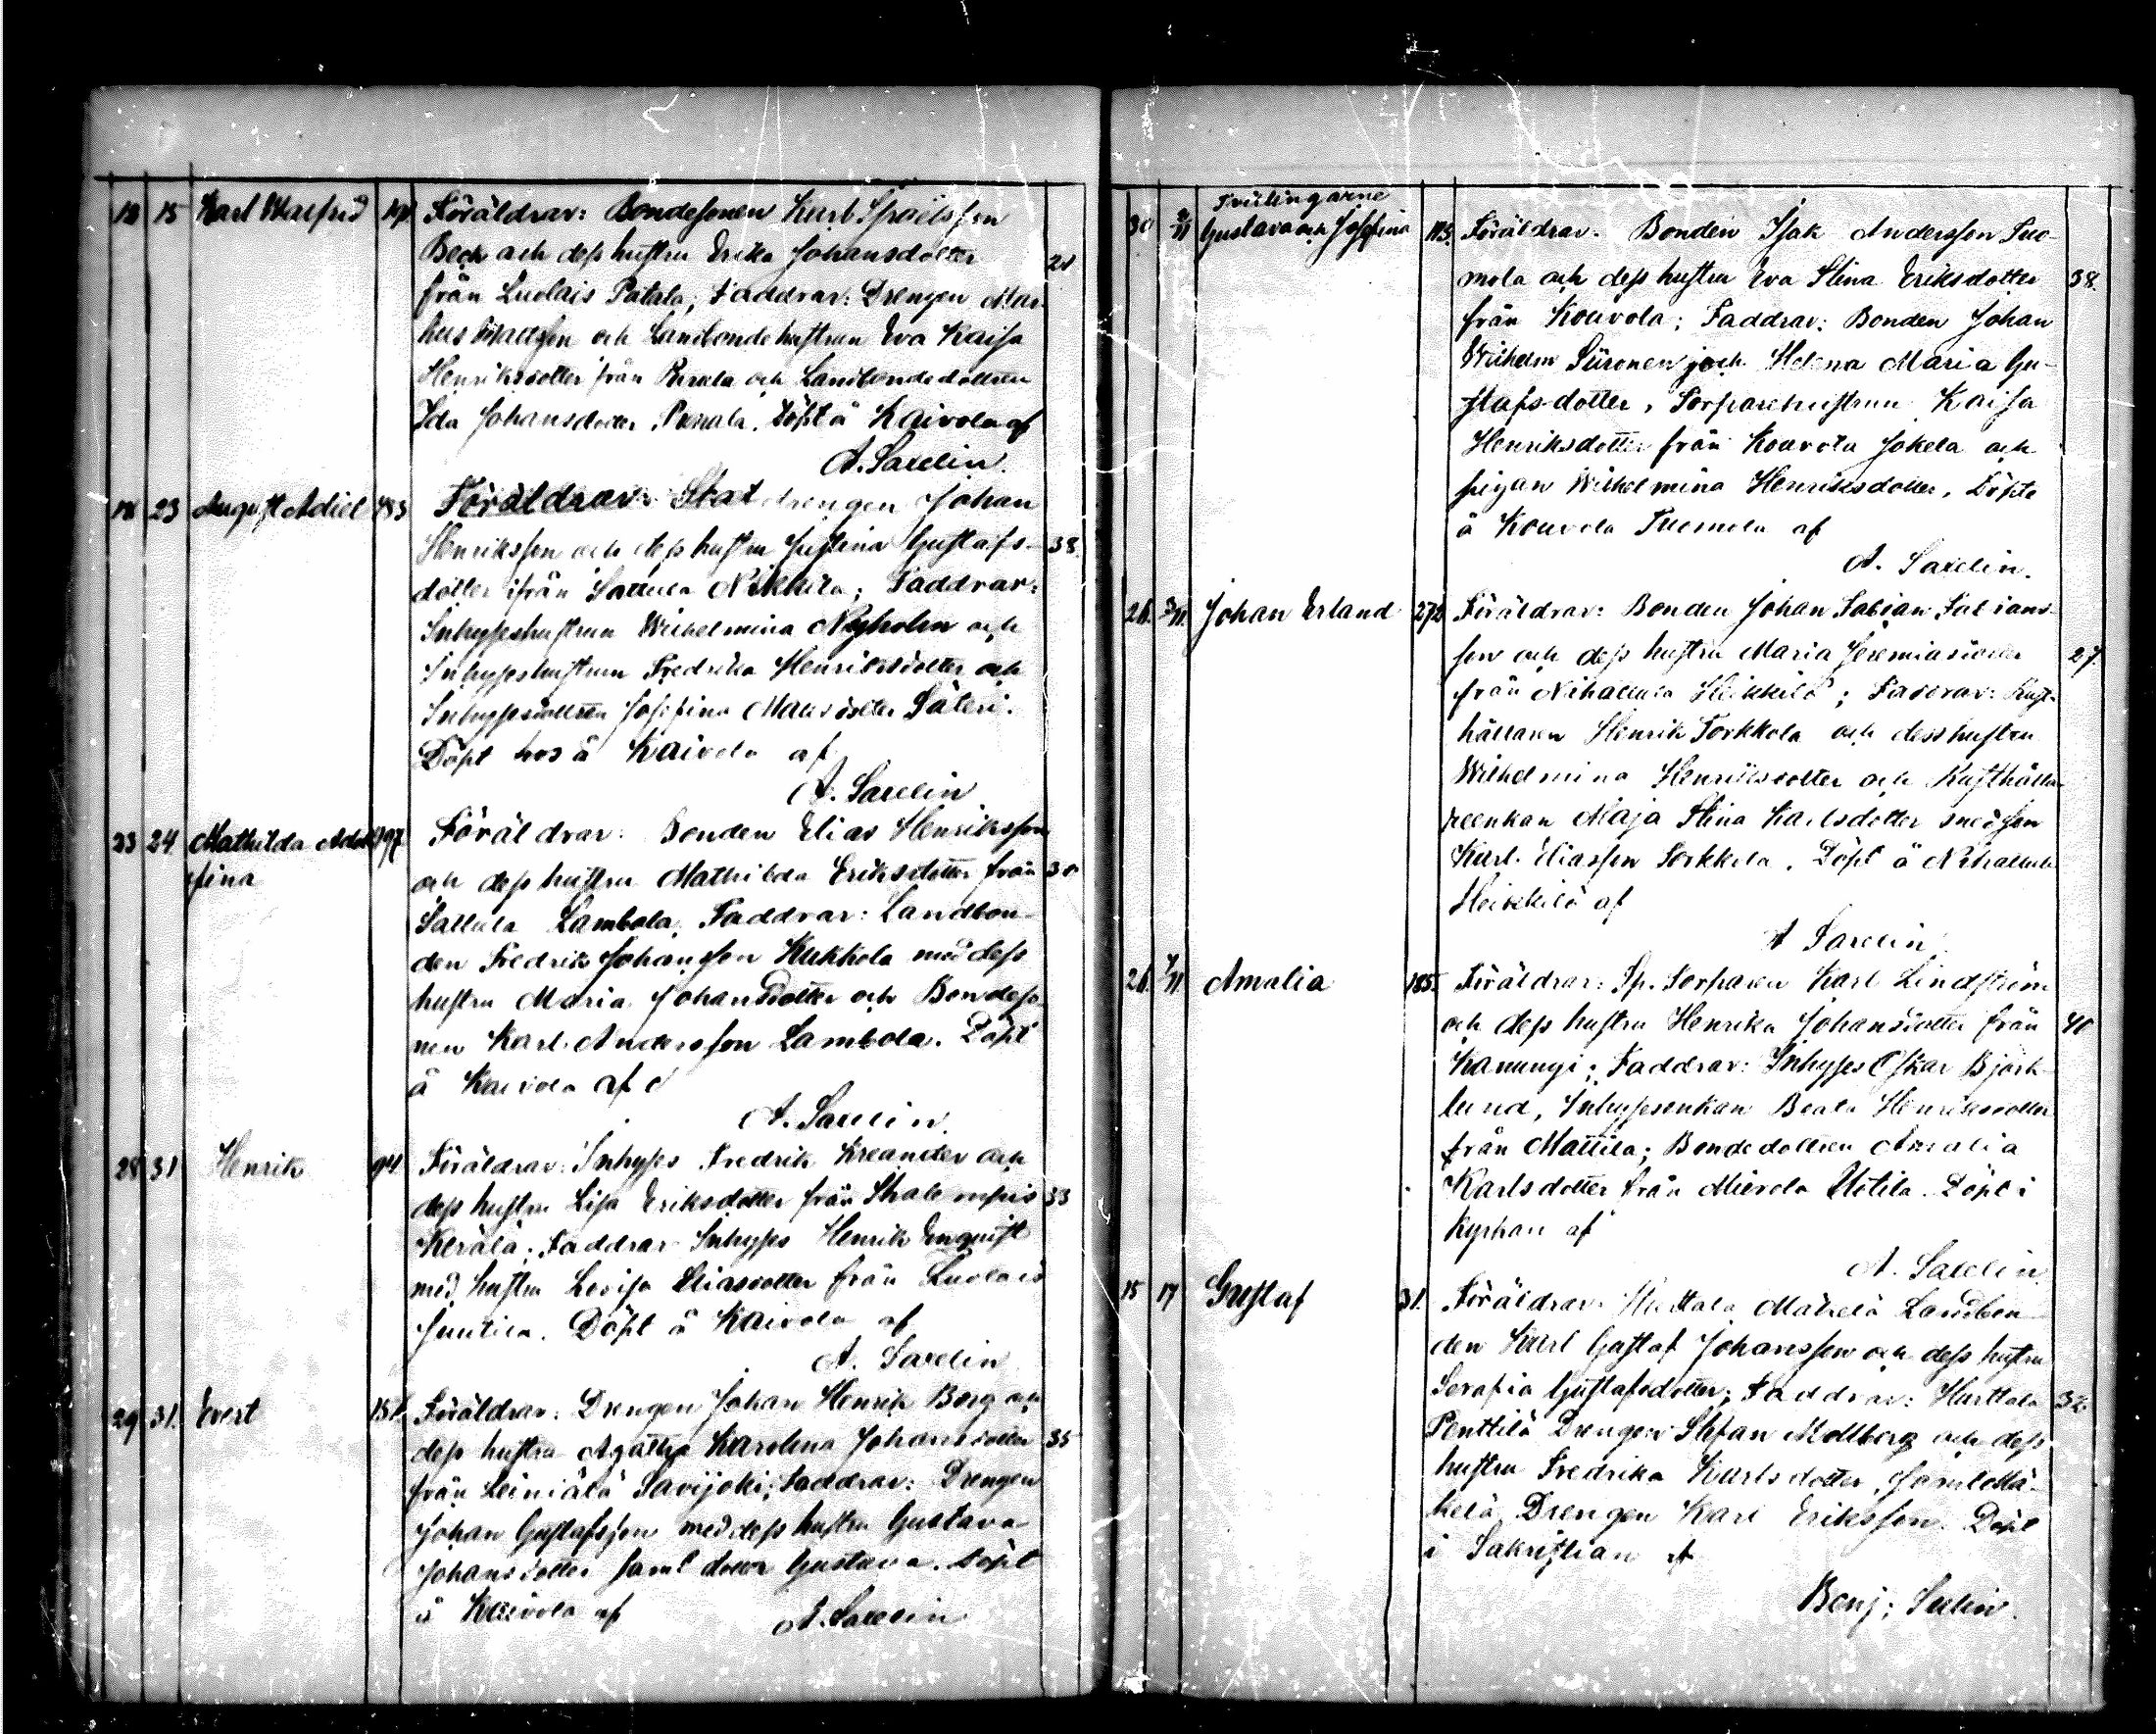 12 15 Karl Walfrid 191 Föräldrar: Bondesonen Karl Israelsson
Beck och dess hustru Erika Johansdotter 21
från Luolais Patala; Faddrar: Drengen Mar-
kus Mattsson och Landbondehustrun Eva Kaisa
Henriksdotter från Pursila och Landbondedottren
Ida Johansdotter. Döpt å Kaivola af
A. Saxelin.
18 23 August Adiel 183 Föräldrar: Statdrengen Johan
Henriksson och dess hustru Justina Gustafs- 38.
dotter ifrån Sattula Nikkilä; Faddrar:
Inhyseshustrun Wilhelmina Nyholm och
Inhyseshustrun Fredrika Henriksdotter och
Inhysesdottren Josefina Matsdotter Säteri.
Döpt hos å Kaivola af
A. Saxelin
23 24 Mathilda Adol- 197 Föräldrar: Bonden Elias Henriksson
fina
och dess hustru Mathilda Eriksdotter från 30
Sattula Lambola. Faddrar: Landbon-
den Fredrik Johansson Kukkola med dess
hustru Maria Johansdotter och Bondeso-
nen Karl Andersson Lambola. Döpt
å Kaivola af
A. Saxelin.
28 31 Henrik 94 Föräldrar: Inhyses Fredrik Kreander och
dess hustru Lisa Eriksdotter från 33
Kerälä; Faddrar Inhyses Henrik Enqvist
med hustru Lovisa Eliasdotter från Luolais
Juutila. Döpt å Kaivola af
A. Saxelin
29 31. Evert 151 Föräldrar: Drengen Johan Henrik Berg och
dess hustru Agatha Karolina Johansdotter 35
från Leiniälä Savijoki; Faddrar: Drengen
Johan Gustafsson med dess hustru Gustava
Johansdotter samt dotter Gustava. Döpt
å Kaivola af A. Saxelin
Tvillingarne
30 2/11 Gustava och Josefina 113. Föräldrar: Bonden Isak Andersson Tuo-
mola och dess hustru Eva Stina Eriksdotter 38.
från Kouvola; Faddrar: Bonden Johan
Wilhelm Siironen och Helena Maria Gu-
stafsdotter, Torparehustrun Kaisa
Henriksdotter från Kouvola Jokela och
pigan Wilhelmina Henriksdotter. Döpte
å Kouvola Tuomola af
A. Saxelin.
26. 2/11. Johan Erland 272 Föräldrar: Bonden Johan Fabian Fabians-
son och dess hustru Maria Jeremiasdotter 27.
från Nihattula Heikkilä; Faddrar: Rust-
hållaren Henrik Torkkola och dess hustru
Wilhelmina Henriksdotter och Rusthålla-
reenkan Maja Stina Karlsdotter med son
Karl Eliasson Torkkola. Döpt å Nihattula
Heikkilä af
A Saxelin.
26. 7/11. Amalia 185. Föräldrar: Sp. Torparen Karl Lindström
och dess hustru Henrika Johansdotter från 40
Kanungi; Faddrar: Inhyses Oskar Björk-
lund, Inhysesenkan Beata Henriksdotter
från Mattila; Bondedottren Amalia
Karlsdotter från Mierola Uotila. Döpt i
kyrkan af
A. Saxelin.
15 17 Gustaf 31. Föräldrar: Hurttala Mäkelä Landbon-
den Karl Gustaf Johansson och dess hustru
Serafia Gustafsdotter; Faddrar: Hurttala 32.
Penttilä Drengen Stefan Mollberg och dess
hustru Fredrika Karlsdotter, samt Mä-
kelä Drengen Karl Eriksson. Döpt
i Sakristian af
Benj: Selin.